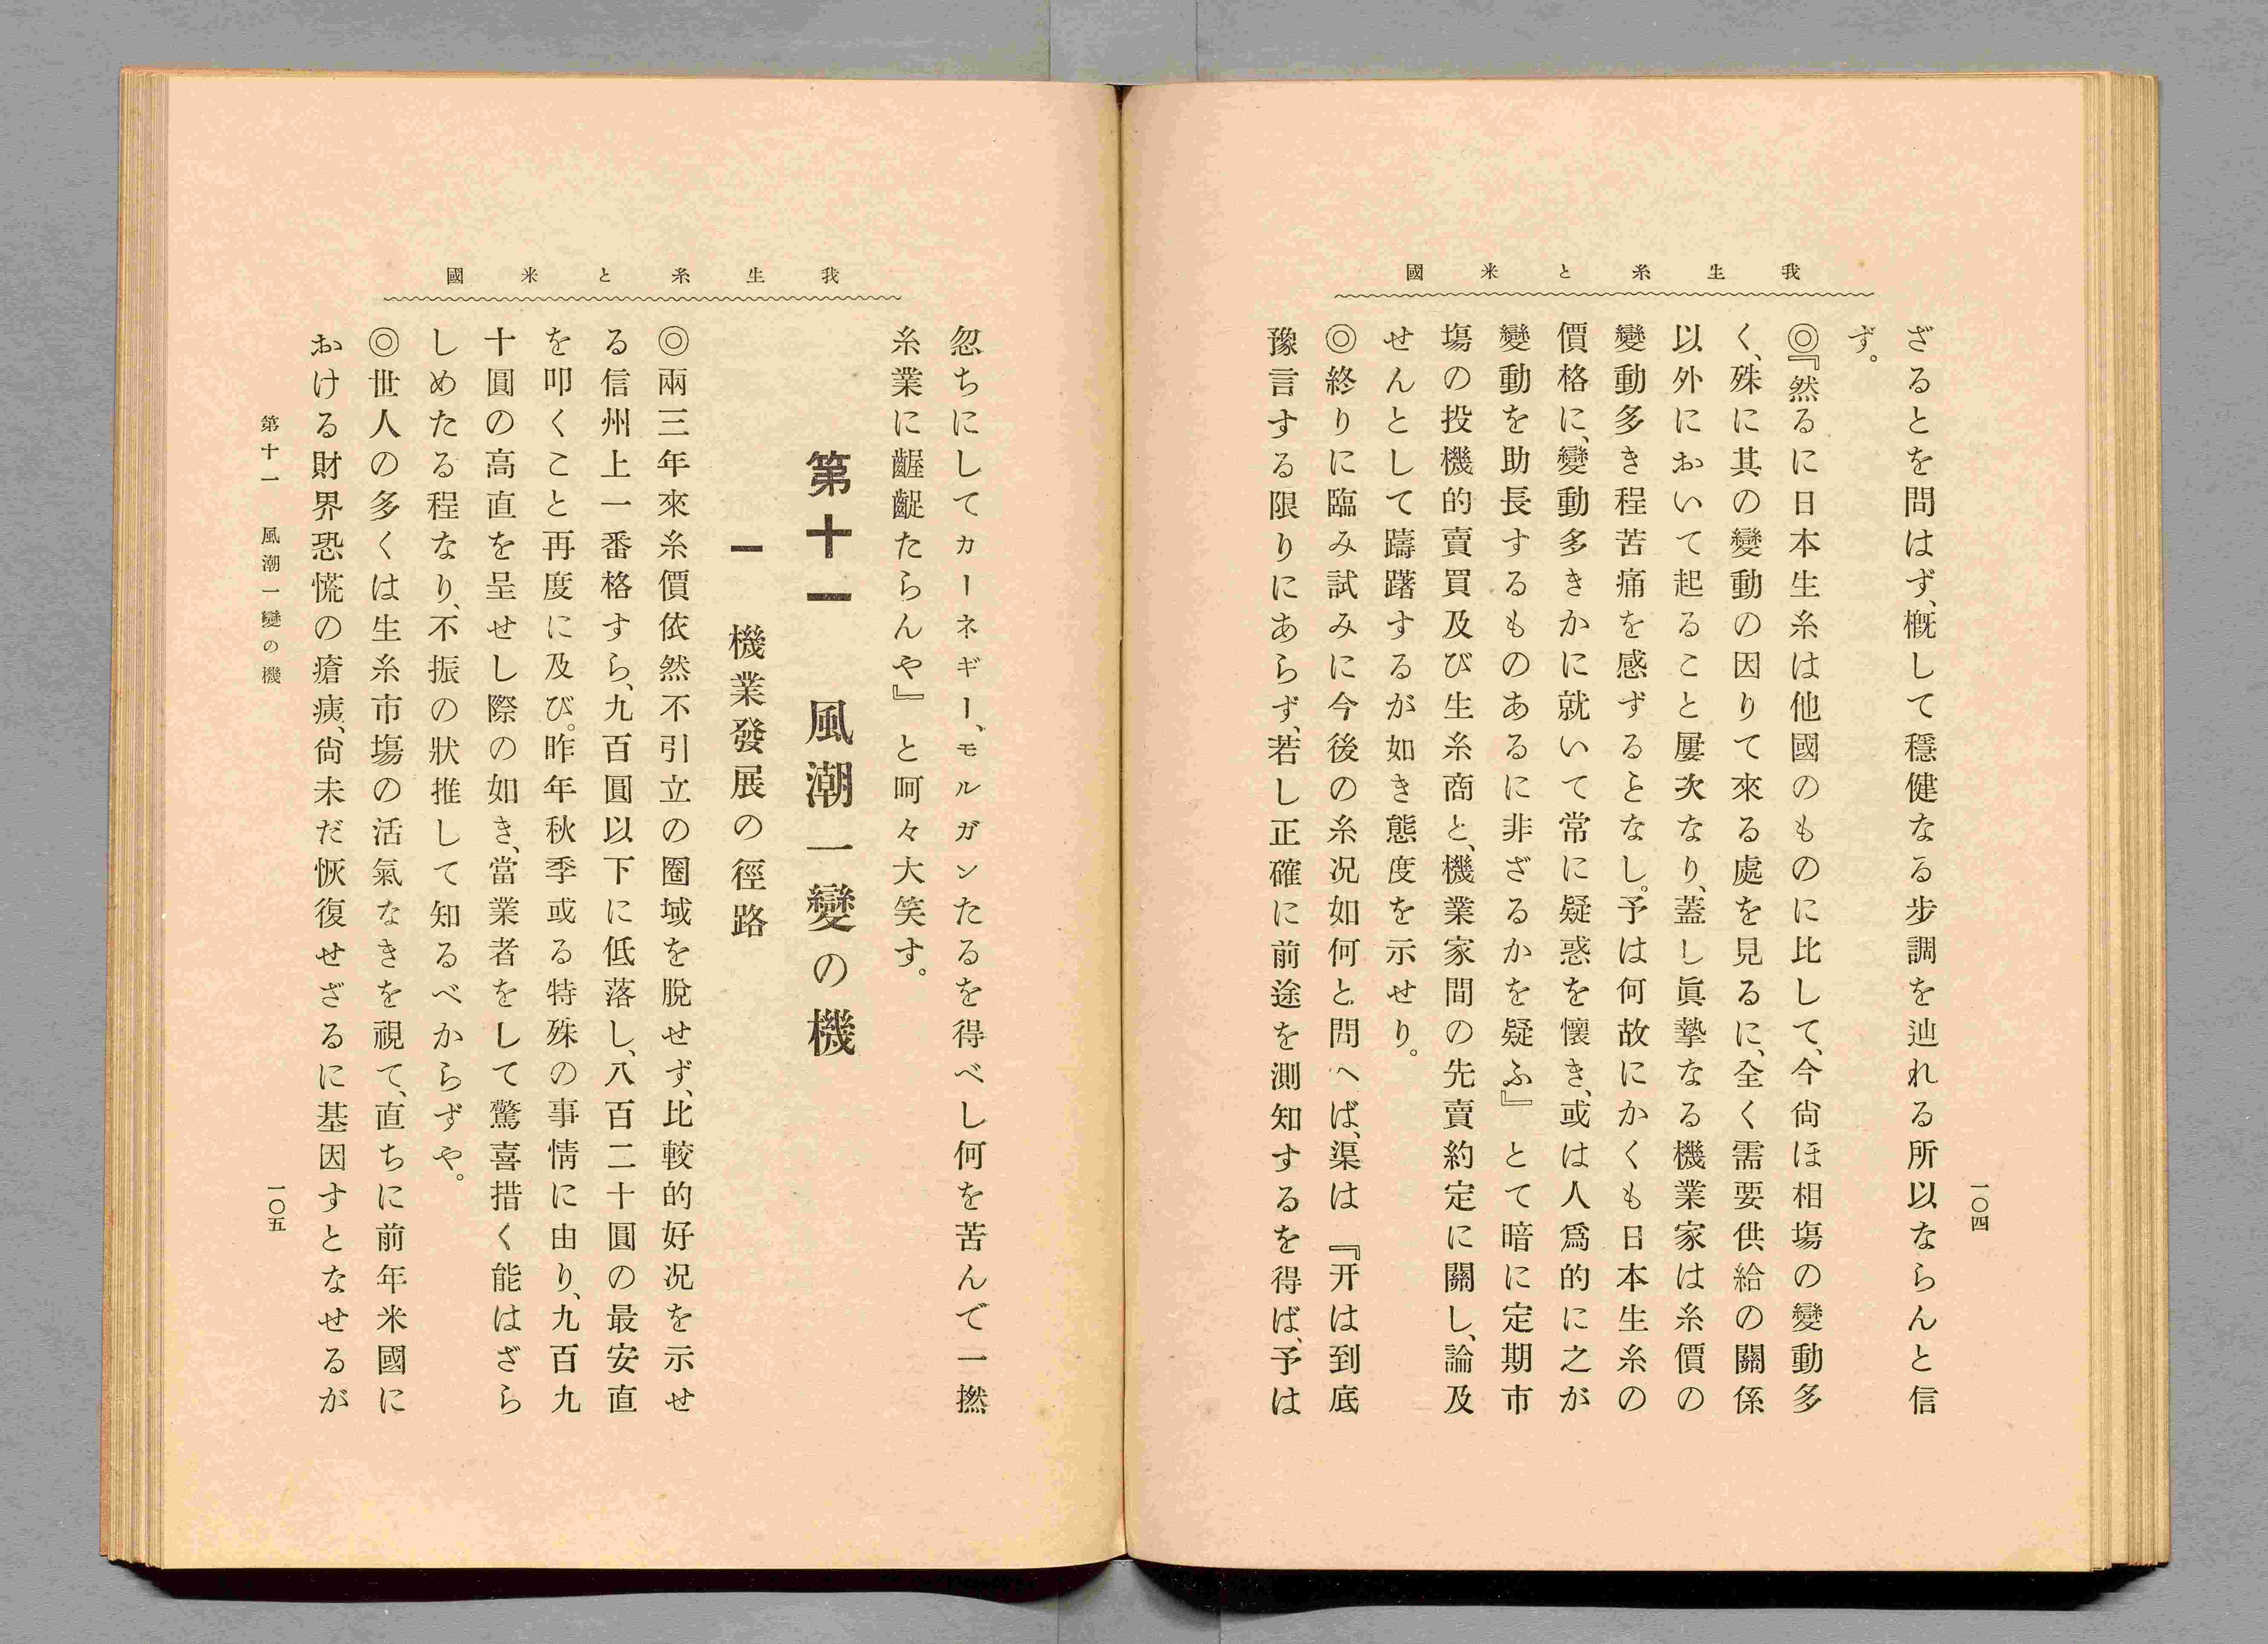 我生糸と米國
一〇四
ざるとを問はず、概して穩健なる步調を辿れる所以ならんと信
ず。
◎『然るに日本生糸は他國のものに比して、今尙ほ相塲の變動多
く、殊に其の變動の因りて來る處を見るに、全く需要供給の關係
以外において起ること屢次なり、蓋し眞摯なる機業家は糸價の
變動多き程苦痛を感ずるとなし。予は何故にかくも日本生糸の
價格に、變動多きかに就いて常に疑惑を懷き、或は人爲的に之が
變動を助長するものあるに非ざるかを疑ふ』とて暗に定期市
塲の投機的賣買及び生糸商と、機業家間の先賣約定に關し、論及
せんとして躊躇するが如き態度を示せり。
◎終りに臨み試みに今後の糸况如何と問へば、渠は『开は到底
豫言する限りにあらず、若し正確に前途を測知するを得ば、予は
我生糸と米國
忽ちにしてカーネギー、モルガンたるを得べし何を苦んで一撚
糸業に齷齪たらんや』と呵々大笑す。
第十一　風潮一變の機
一　機業發展の徑路
◎兩三年來糸價依然不引立の圈域を脫せず、比較的好况を示せ
る信州上一番格すら、九百圓以下に低落し、八百二十圓の最安直
を叩くこと再度に及び。昨年秋季或る特殊の事情に由り、九百九
十圓の高直を呈せし際の如き、當業者をして驚喜措く能はざら
しめたる程なり、不振の狀推して知るべからずや。
◎世人の多くは生糸市塲の活氣なきを視て、直ちに前年米國に
おける財界恐慌の瘡痍、尙未だ恢復せざるに基因すとなせるが
第十一　風潮一變の機
一〇五